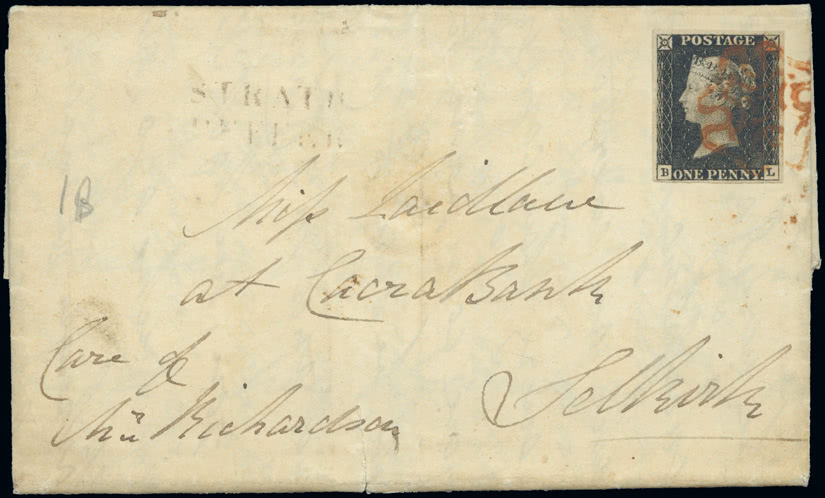 POSTAGE
B ONE PENNY L
STRATH
PEFFER
1B
Miss Laidlaw
at CacraBank
Selkirk
Care of
Mrs Richardson